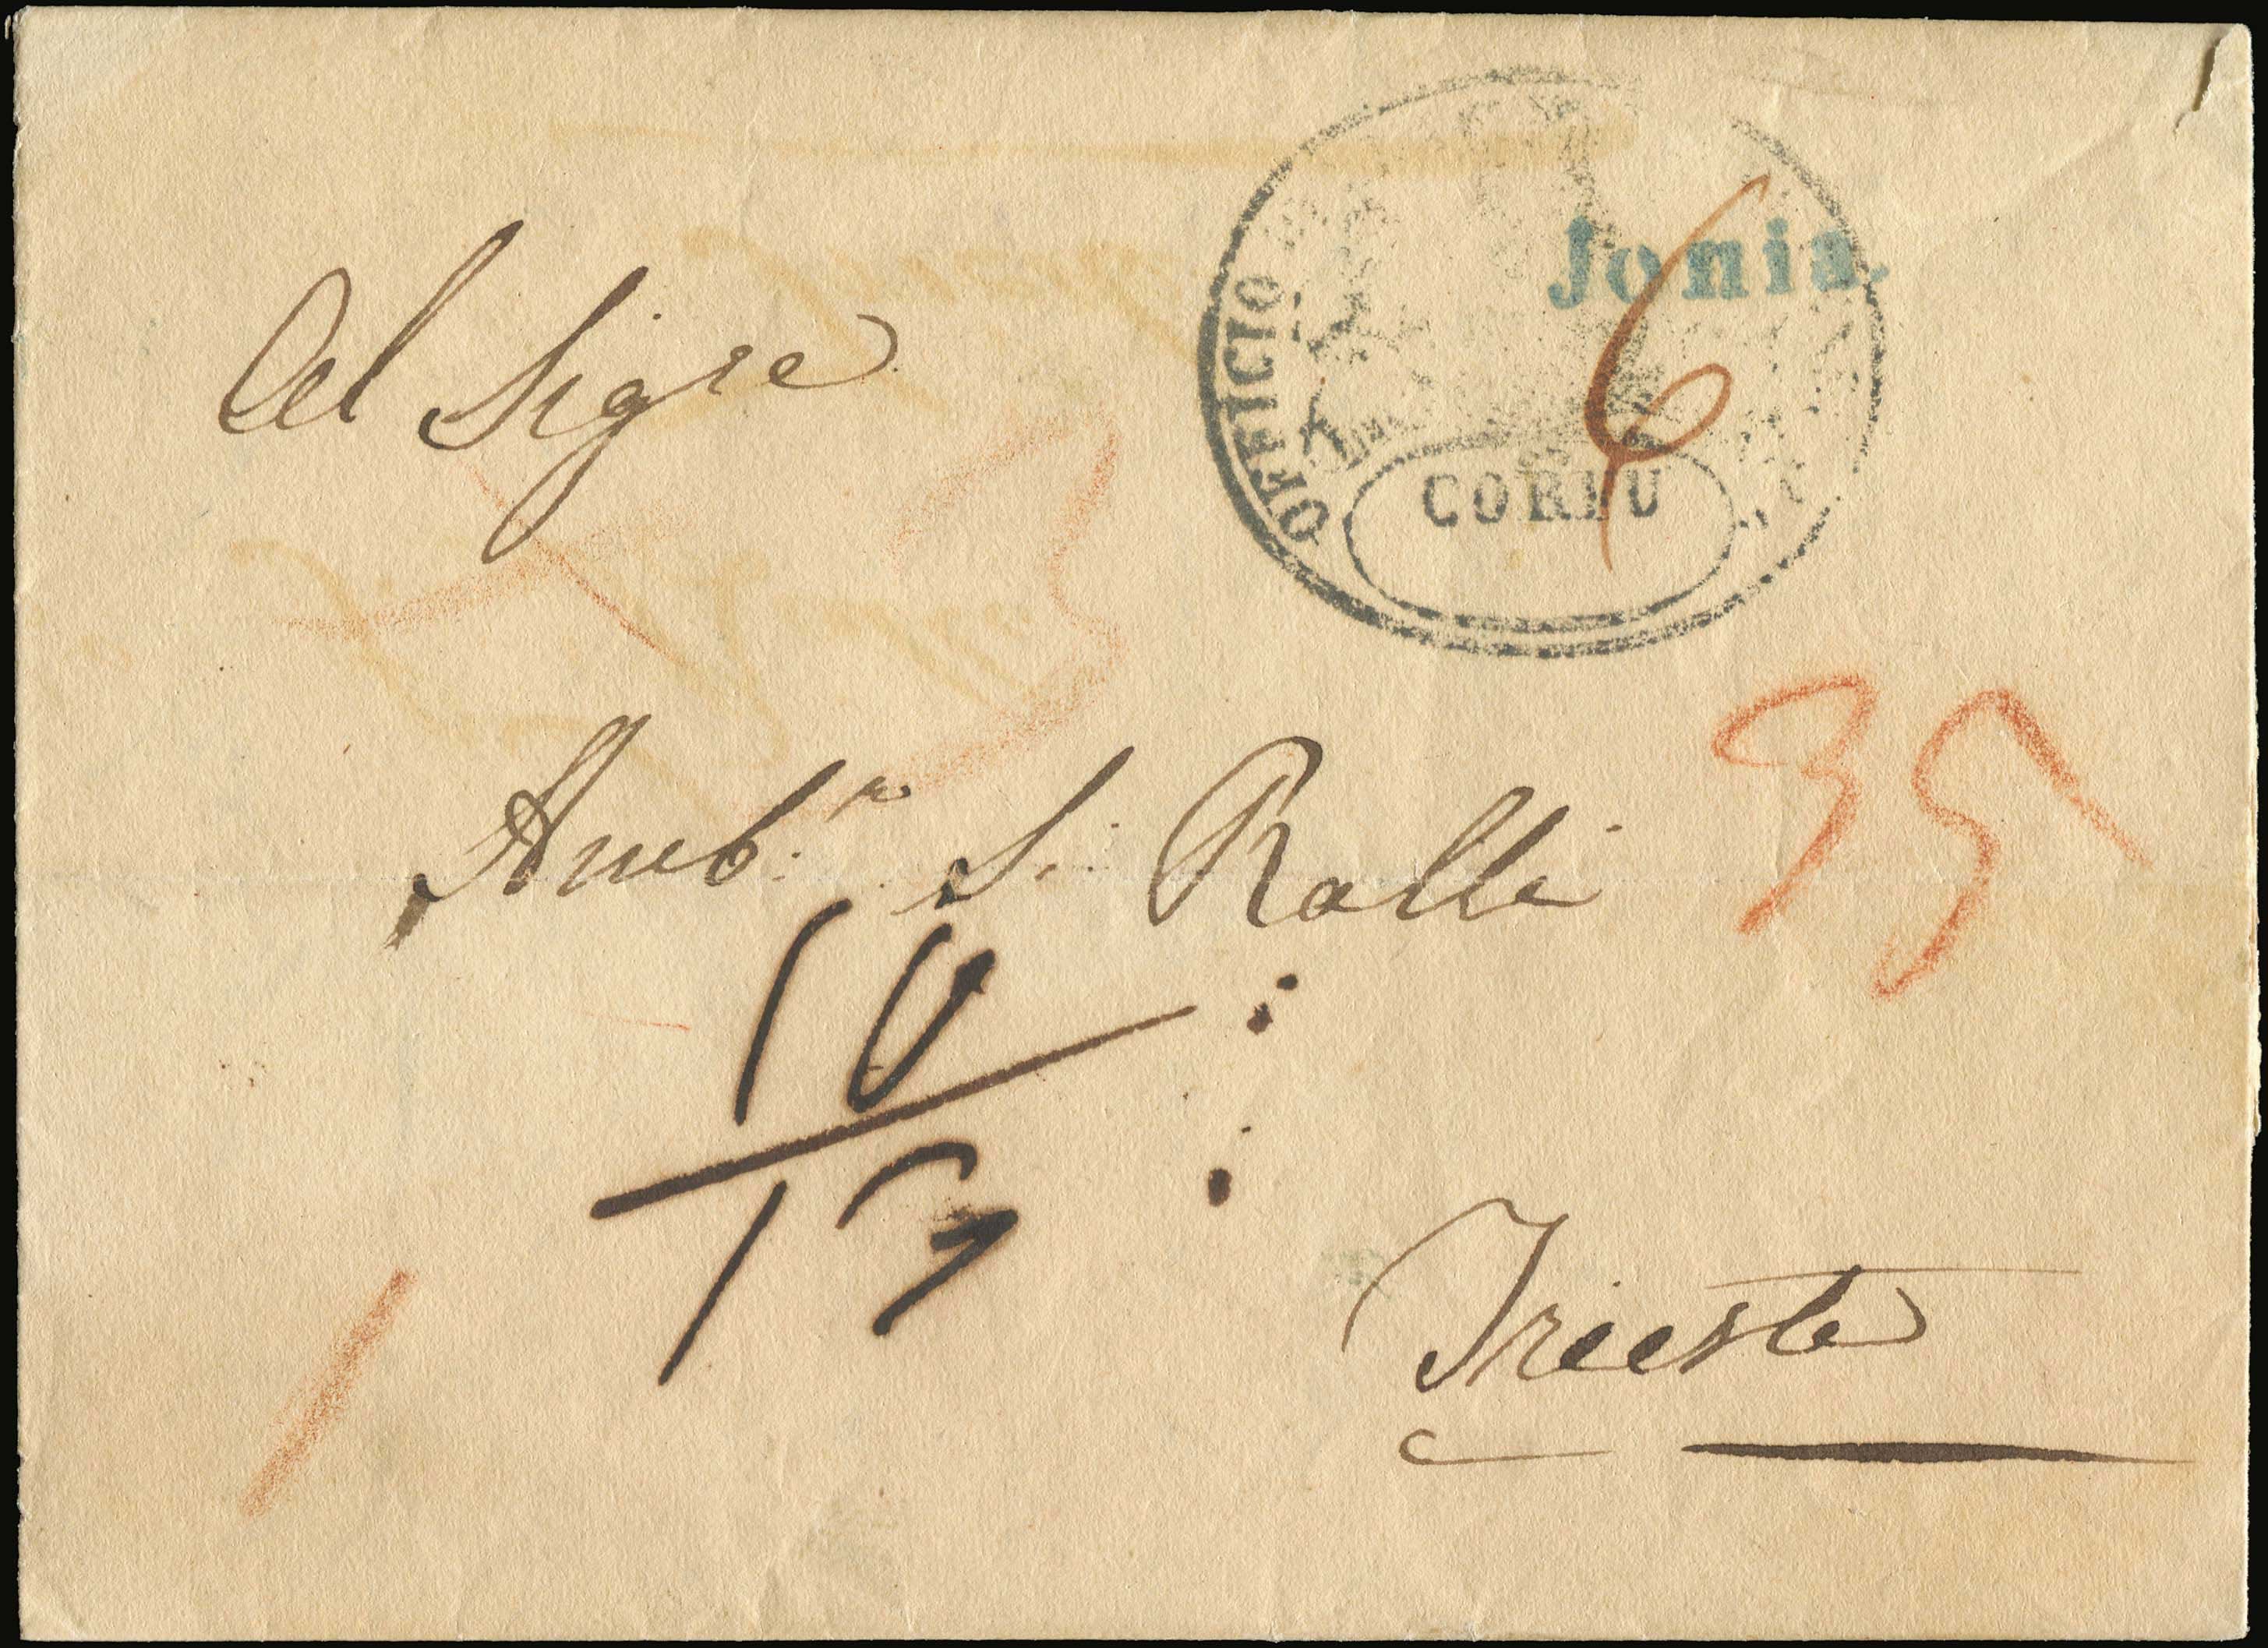 Jonia.
6
OFFICIO
CORFU
Al Sigre
Amb.r S. Ralli
35
10
13
1
Trieste